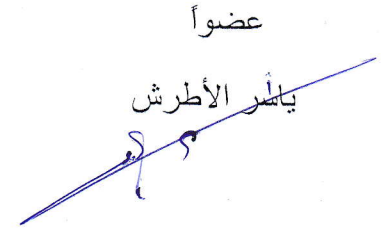 عضواً
ياسر الأطرش